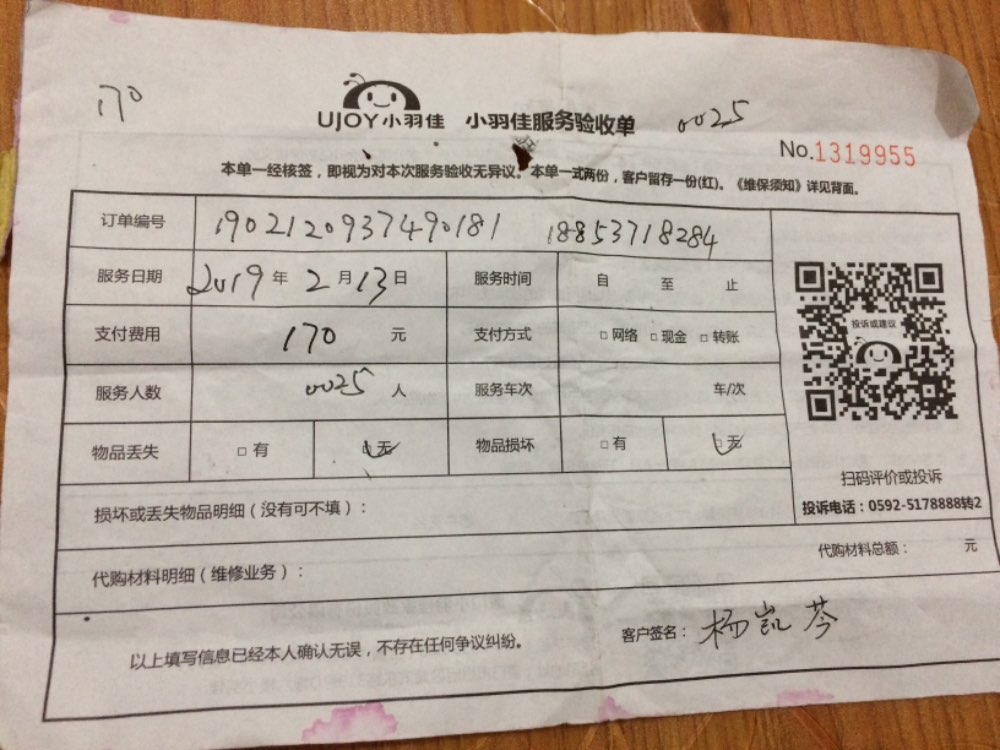 170
UJOY小羽佳 小羽佳服务验收单 0025
No.1319955
本单一经核签，即视为对本次服务验收无异议。本单一式两份，客户留存一份(红)。《维保须知》详见背面。
订单编号 190212093749 0181 18853718284
服务日期 2019 年 2 月 13 日 服务时间 自 至 止
支付费用 170 元 支付方式 □ 网络 □ 现金 □ 转账
投诉或建议
服务人数 0025 人 服务车次 车/次
物品丢失 □ 有 □ 无 物品损坏 □ 有 □ 无
扫码评价或投诉
投诉电话：0592-5178888转2
损坏或丢失物品明细（没有可不填）：
代购材料明细（维修业务）： 代购材料总额： 元
以上填写信息已经本人确认无误，不存在任何争议纠纷。 客户签名：杨凯芩